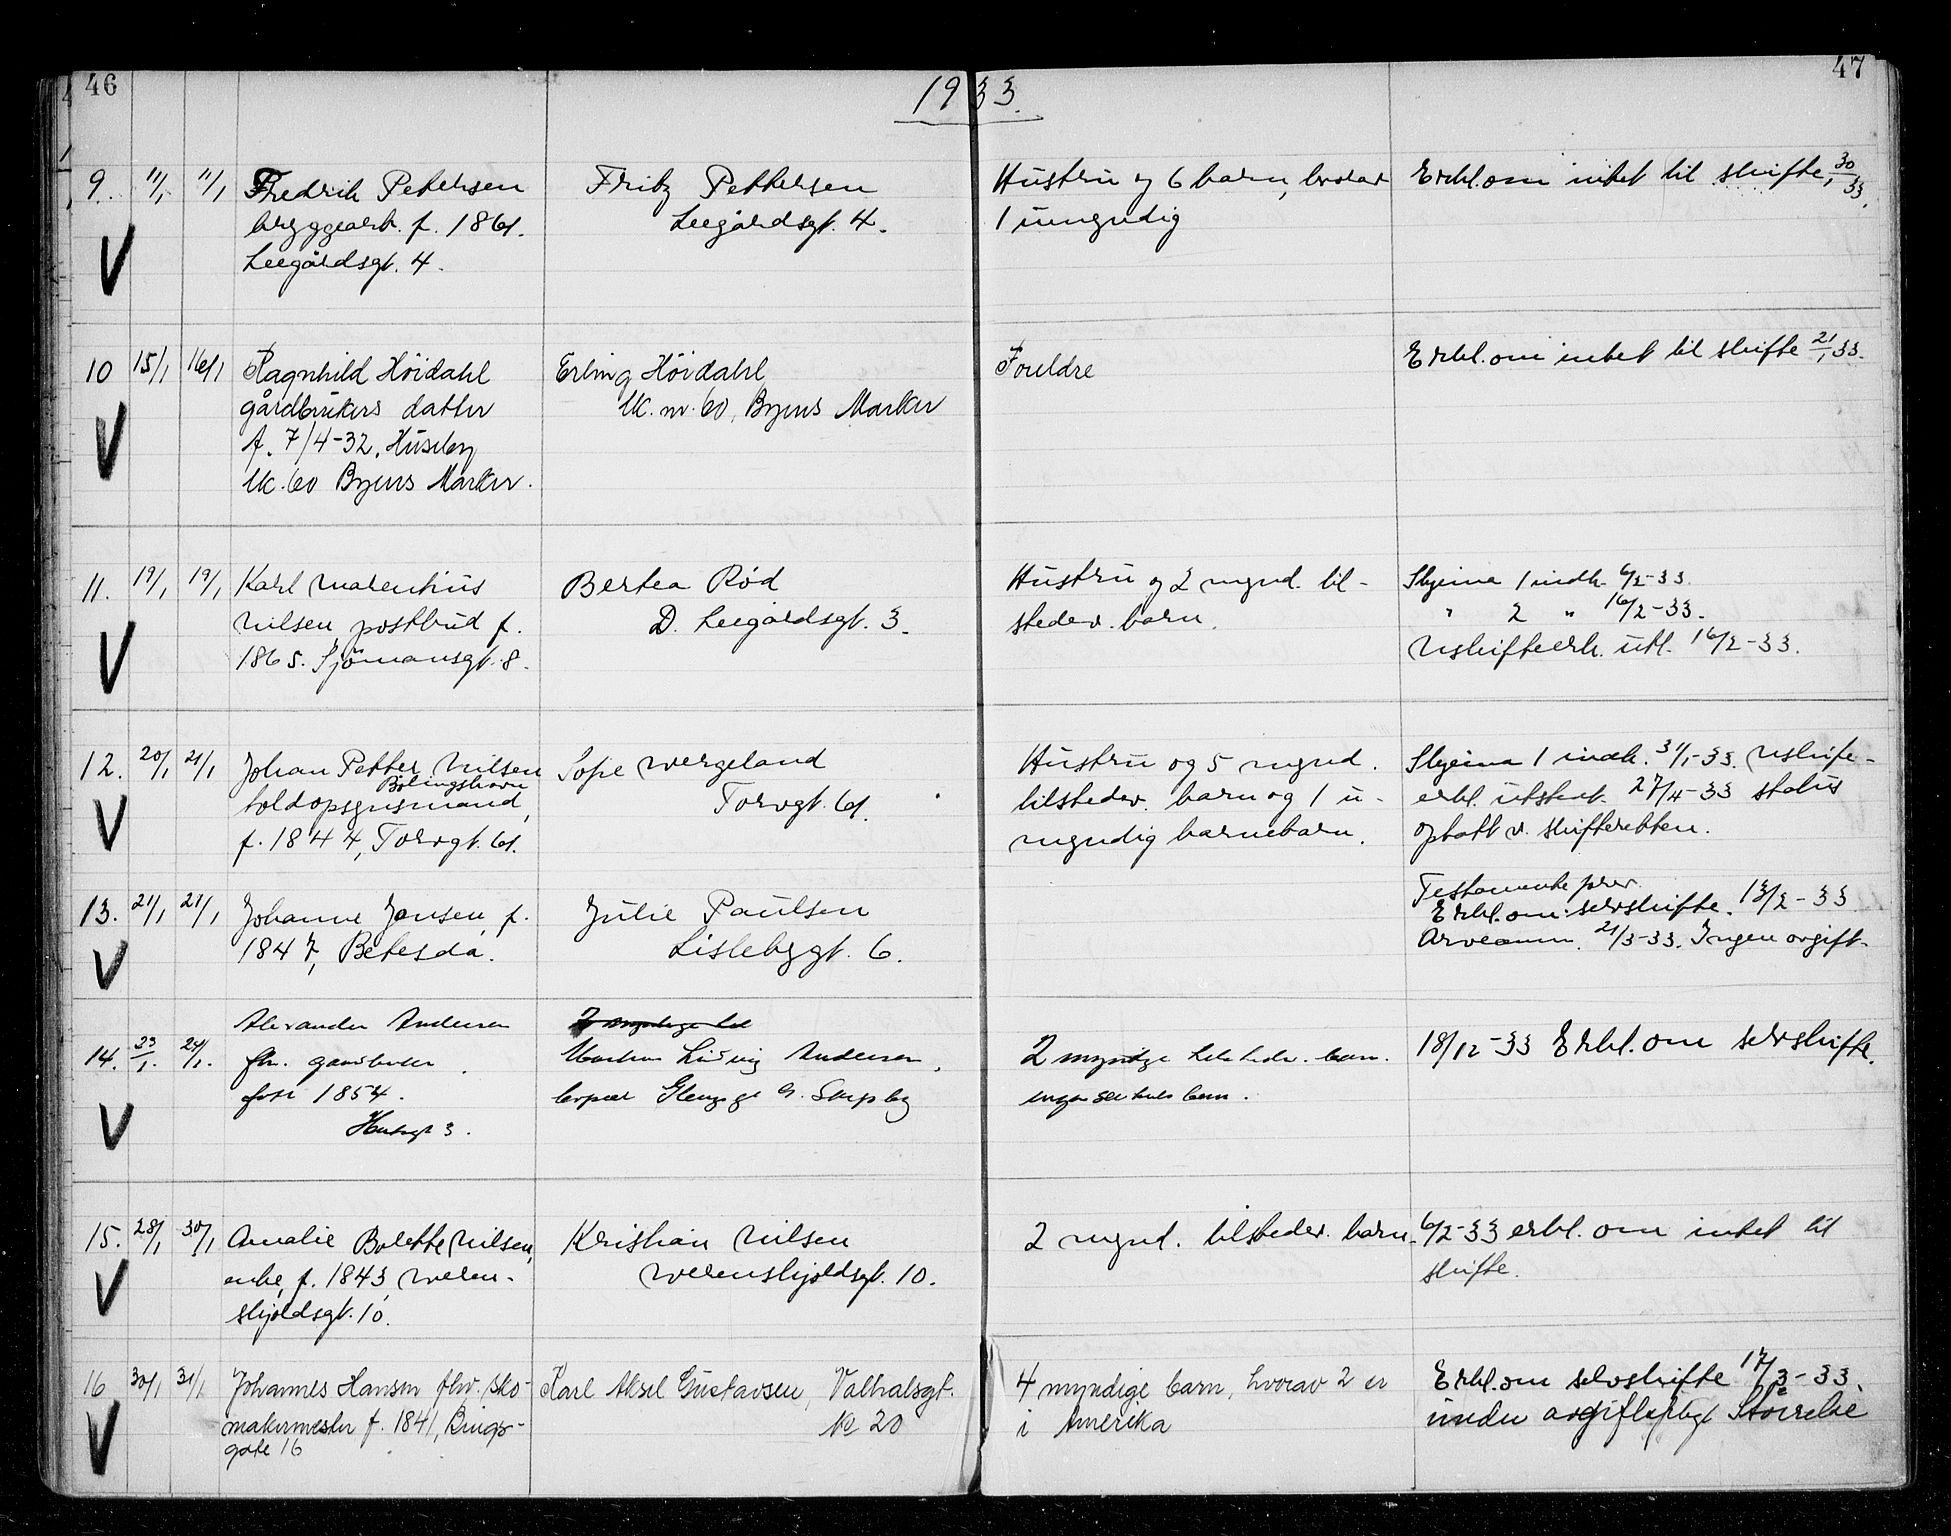 46
47
1933.
9. 11/1 11/1 Fredrik Petersen Fritz Pettersen Hustru og 6 barn, hvorav Erkl. om intet til skifte 30/1 33.
bryggearb. f. 1861. Leegårdsgt. 4. 1 umyndig
Leegårdsgt. 4.
10 15/1 16/1 Ragnhild Höidahl Erling Höidahl Foreldre Erkl. om intet til skifte 21/1 33.
gårdbrukers datter Uk. nr. 60, Byens Marker
f. 7/4-32. Huseby
Uk. 60 Byens Marker.
11. 19/1 19/1 Karl Marentius Bertea Rød Hustru og 2 mynd. til- Skjema 1 indk. 6/2-33.
Nilsen, postbud f. D. Leegårdsgt. 3. stedev. barn. " 2 " 16/2-33.
1865. Sjömansgt. 8. Uskifteerk. utl. 16/2-33.
12. 20/1 21/1 Johan Petter Nilsen Sofie Wergeland Hustru og 5 mynd. Skjema 1 indk. 31/1-33. Uskifte-
Bölingshavn
toldopsynsmand, Torvgt. 61. tilstedev. barn og 1 u- erkl. utstedt. 27/4-33 status
f. 1844, Torvgt. 61. myndig barnebarn. optatt v. skifteretten.
13. 21/1 21/1 Johanne Jensen, f. Julie Paulsen Testamente prov.
1847, Betesda. Lislebygt. 6. Erkl. om selvskifte. 13/2-33
Arveanm. 21/3-33. Ingen avgift.
14. 23/1. 24/1. Alexander Andersen 2 myndige til
fhv. gaardbruker Ludvig Andersen, 2 myndige tilstedev. barn. 18/12-33 Erkl. om selvskifte.
født 1854. Glengsgt 9. Sarpsborg barn.
3.
15. 28/1 30/1 Amalie Bolette Nilsen, Kristian Nilsen 2 mynd. tilstedev. barn. 6/2-33 erkl. om intet til
enke, f. 1843, Weren- Werenskjoldsgt. 10. skifte.
skjoldsgt. 10.
16 30/1 31/1 Johannes Hansen fhv. sko- Karl Aksel Gustavsen, Valhalsgt. 4 myndige barn, hvorav 2 er Erkl. om selvskifte 17/3-33.
makermester f. 1841, Rings- No 20 i Amerika under avgiftspligt Störrelse
gate 16